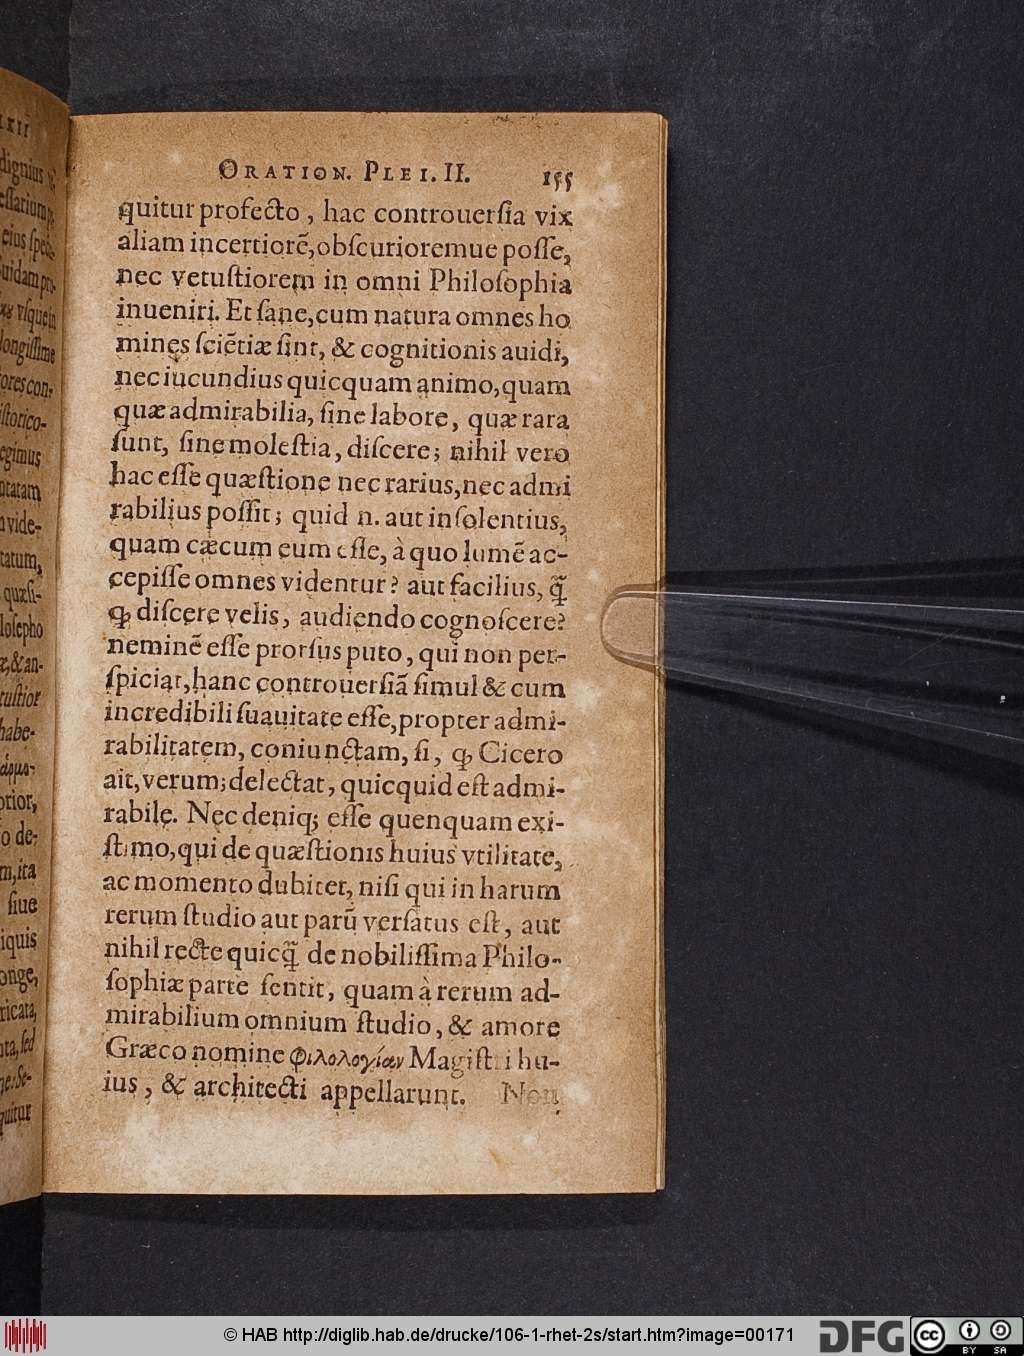 ORATION. PLEI. II. 155
quitur profecto, hac controuerſia vix
aliam incertiorē, obſcurioremue poſſe,
nec vetuſtiorem in omni Philoſophia
inueniri. Et ſane, cum natura omnes ho
mines ſciētiæ ſint, & cognitionis auidi,
nec iucundius quicquam animo, quam
quæ admirabilia, ſine labore, quæ rara
ſunt, ſine moleſtia, diſcere; nihil vero
hac eſſe quæſtione nec rarius, nec admi
rabilius poſſit; quid n. aut inſolentius,
quam cæcum eum eſſe, à quo lumē ac-
cepiſſe omnes videntur? aut facilius, q̃
ꝙ diſcere velis, audiendo cognoſcere?
neminē eſſe prorſus puto, qui non per-
ſpiciat, hanc controuerſiā ſimul & cum
incredibili ſuauitate eſſe, propter admi-
rabilitatem, coniunctam, ſi, ꝙ Cicero
ait, verum; delectat, quicquid eſt admi-
rabile. Nec deniq; eſſe quenquam exi-
ſtimo, qui de quæſtionis huius vtilitate,
ac momento dubitet, niſi qui in harum
rerum ſtudio aut parū verſatus eſt, aut
nihil recte quicq̃ de nobiliſſima Philo-
ſophiæ parte ſentit, quam à rerum ad-
mirabilium omnium ſtudio, & amore
Græco nomine φιλολογίαν Magiſtri hu-
ius, & architecti appellarunt. Non
LXII
dignius
eius
vſque in
longiſſime
ores con-
iſtorico-
egimus
ntatam
vide-
tatum,
quæſi-
loſopho
æ, & an-
tuſtior
habe-
ἁρμο-
prior,
o de-
m, ita
ſiue
iquis
onge,
ricata,
ata, ſed
ne: Se-
quitur
© HAB http://diglib.hab.de/drucke/106-1-rhet-2s/start.htm?image=00171
DFG
cc
BY SA